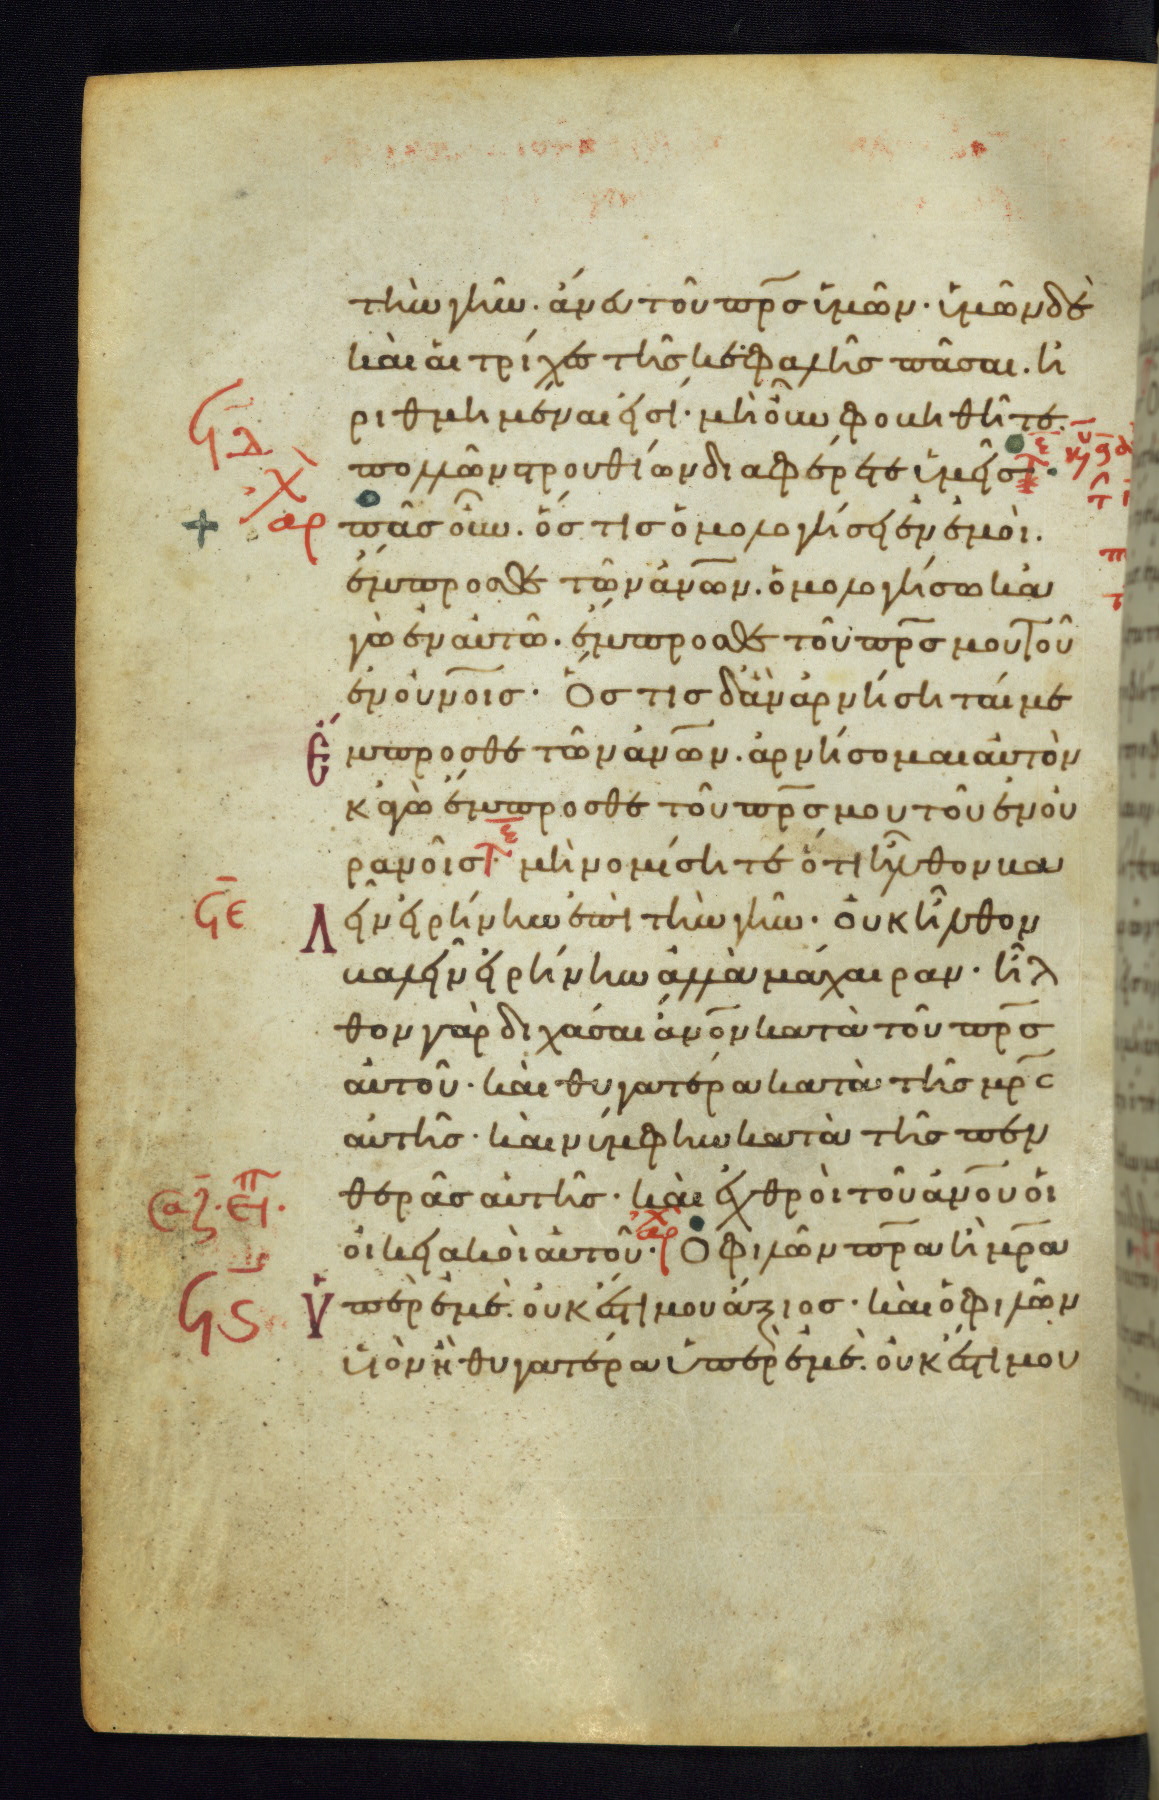 τὴν γῆν. ἄνευ τοῦ πρ̅ς ὑμῶν· ὑμῶν δὲ
καὶ αἱ τρίχες τῆς κεφαλῆς πᾶσαι. ἠ
ριθμημέναι εἰσί· μὴ οὖν φοβηθῆτε.
πολλῶν στρουθίων διαφέρετε ὑμεῖς·
πᾶς οὖν. ὅς τις ὁμολογήσει ἐν ἐμοὶ.
ἔμπροσθε τῶν ἀν̅ων. ὁμολογήσω κἀ
γὼ ἐν αὐτῶ. ἔμπροσθε τοῦ πρ̅ς μου τοῦ
ἐν οὐν̅οις· Ὅς τις δ' ἂν ἀρνήσηταί με
ἔμπροσθε τῶν ἀν̅ων. ἀρνήσομαι αὐτὸν
κἀγὼ ἔμπροσθε τοῦ πρ̅ς μου τοῦ ἐν οὐ
ρανοῖς· μὴ νομίσητε ὅτι ἦλθον βα
λεῖν εἰρήνην ἐπὶ τὴν γῆν· οὐκ ἦλθον
βαλεῖν εἰρήνην ἀλλὰ μάχαιραν· ἦλ
θον γὰρ διχάσαι ἄν̅ον κατὰ τοῦ πρ̅ς
αὐτοῦ· καὶ θυγατέρα κατὰ τῆς μρ̅ς
αὐτῆς· καὶ νύμφην κατὰ τῆς πεν
θερᾶς αὐτῆς· καὶ ἐχθροὶ τοῦ ἀν̅ου οἱ
οἰκειακοὶ αὐτοῦ· Ὁ φιλῶν πρ̅α ἢ μρ̅α
ὑπὲρ ἐμὲ. οὐκ ἔστι μου ἄξιος· καὶ ὁ φιλῶν
υἱὸν ἢ θυγατέρα ὑπὲρ ἐμὲ. οὐκ ἔστι μου